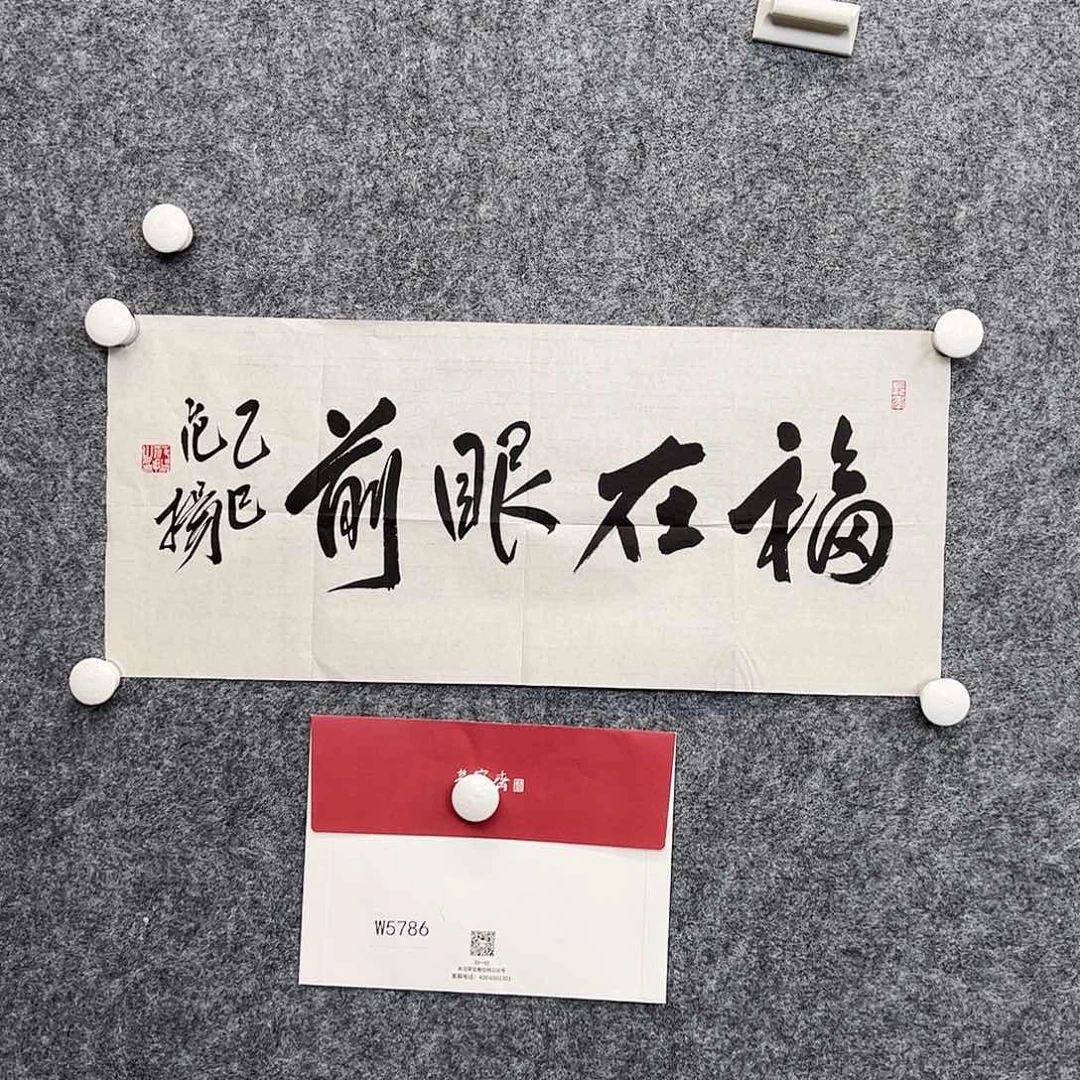 福在眼前
乙巳
范扬
W5786